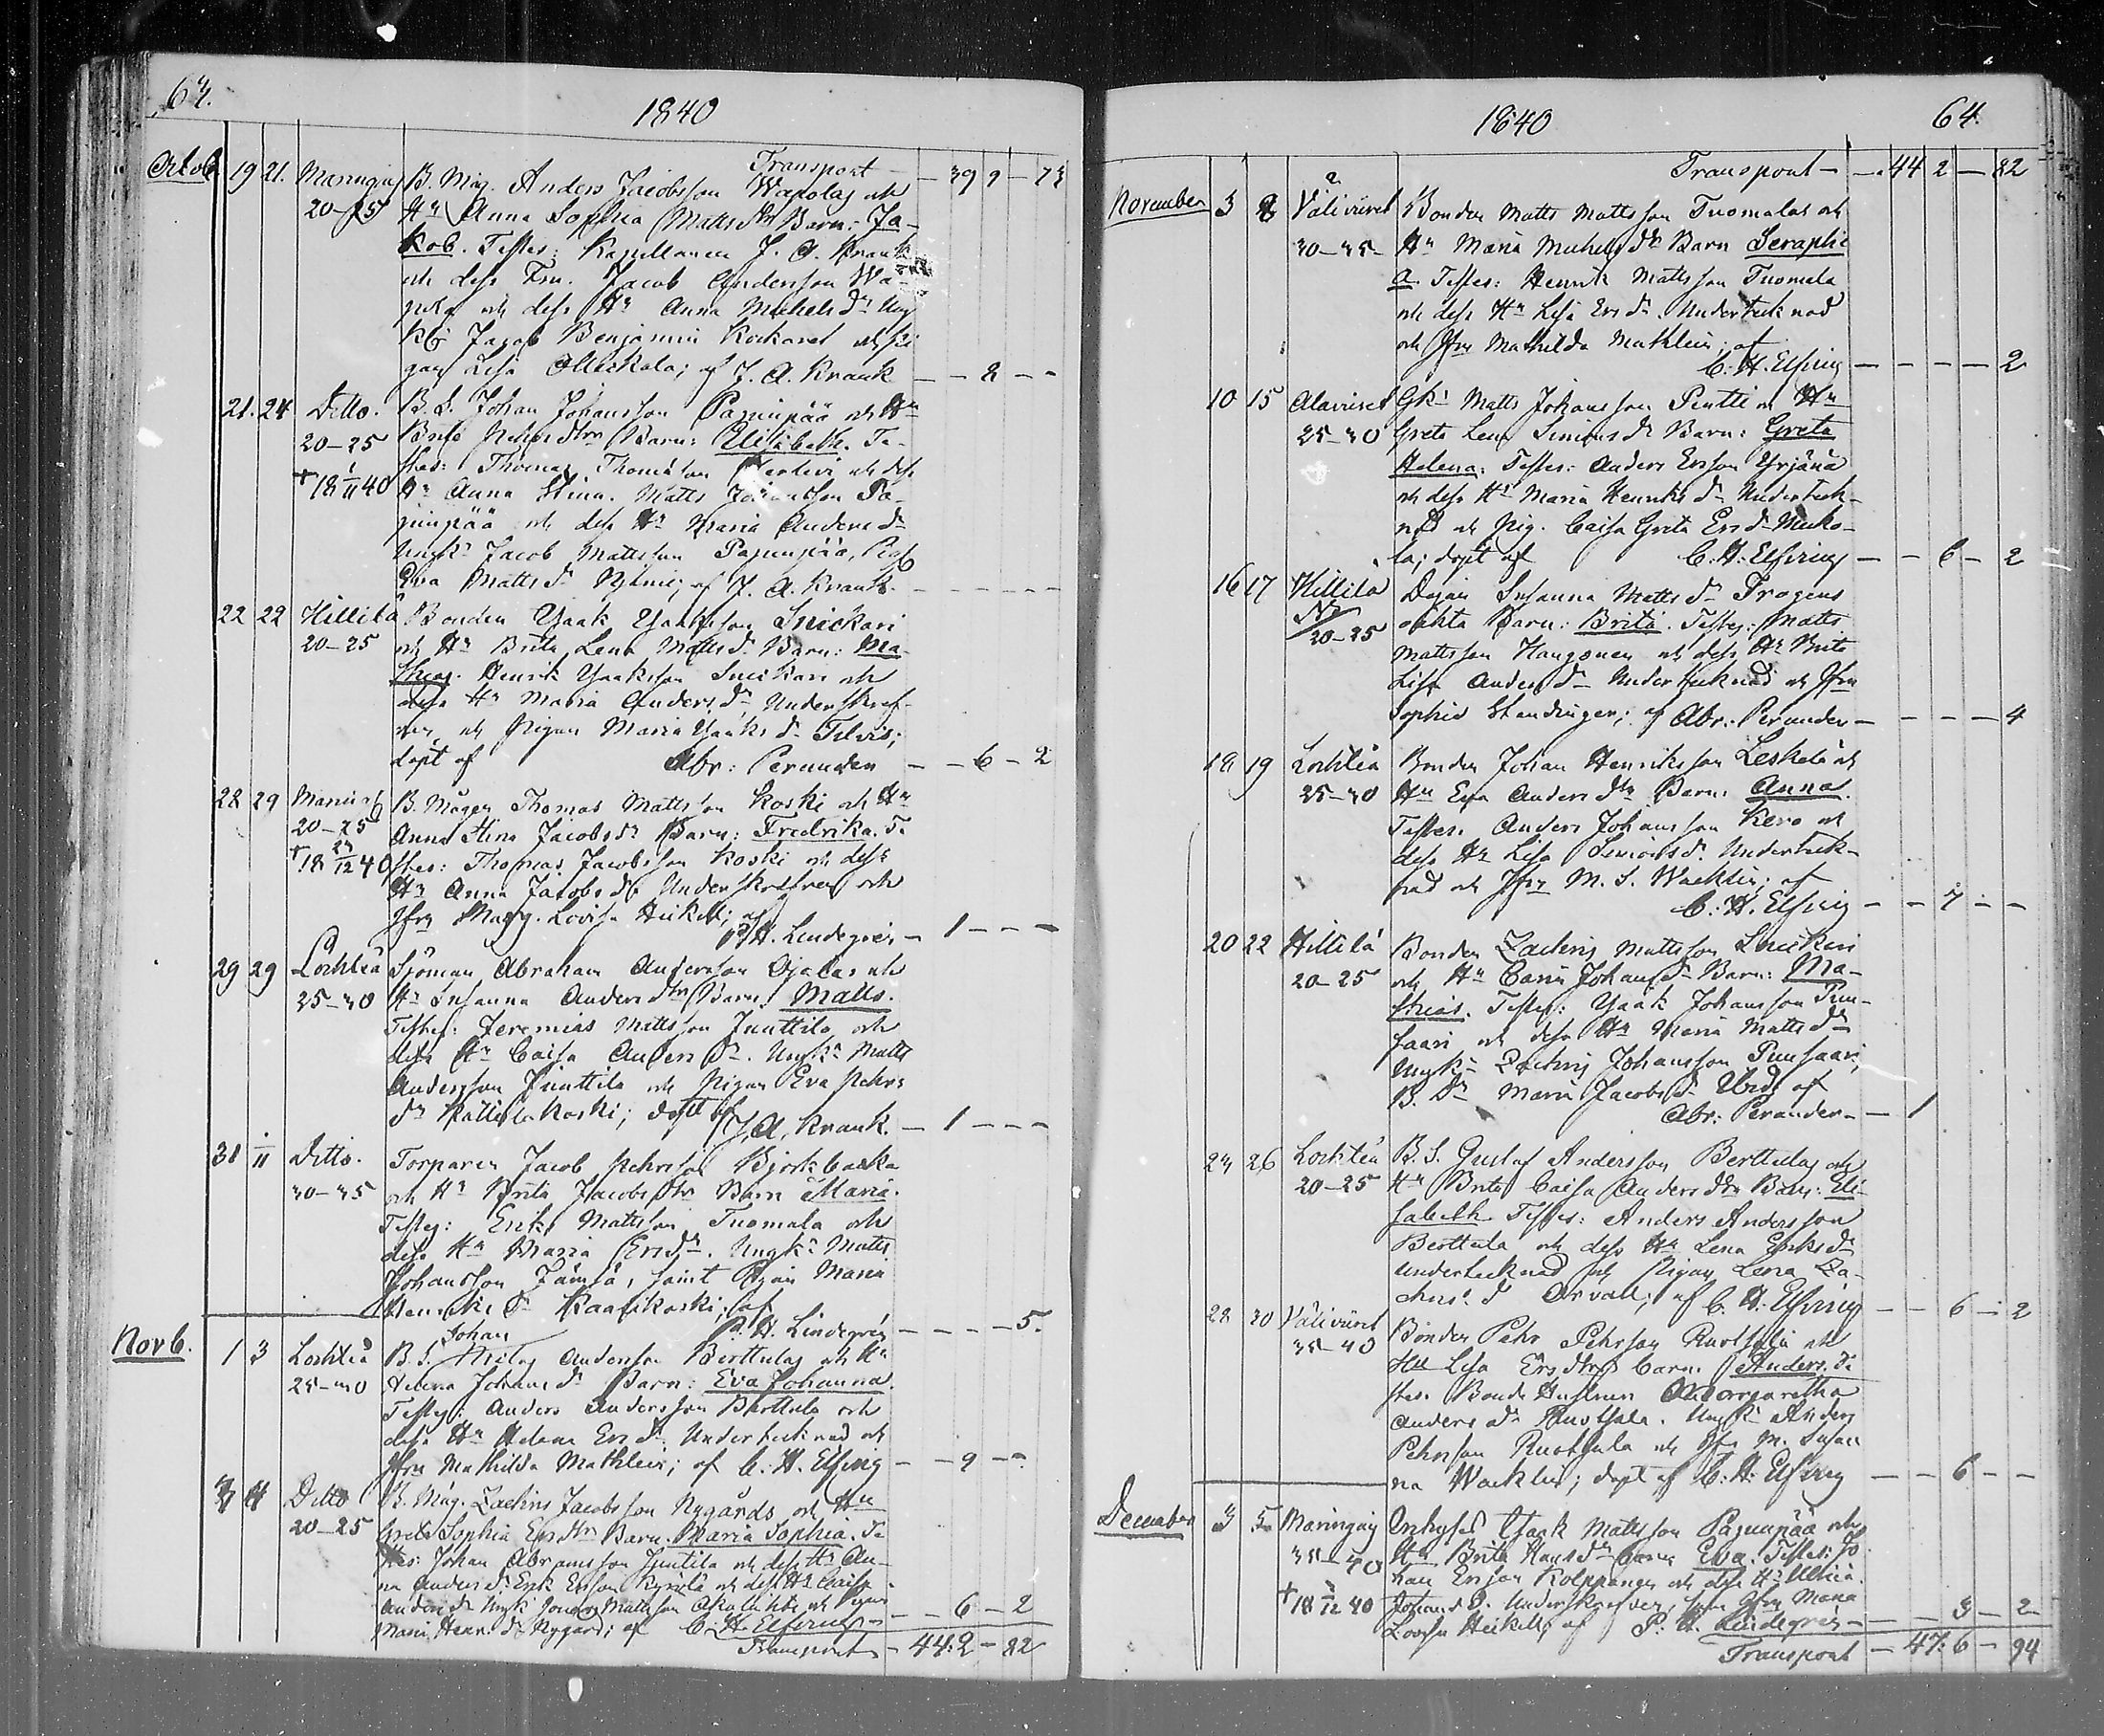 64.
1840
Transport — 39 9 — 73
Octob. 19 21. Maningaig B. Måg. Anders Jacobsson Wapolas och
20-25 Hu Anna Sophia Matts dr Barn: Ja-
kob. Testes: Kapellanen J. A. Krank
och dess Fru. Jacob Andersson Wa-
pola och dess Hu Anna Michels dr Ung
Jacob Benjamin och Pi-
gan Lisa Ollikkala; af J. A. Krank — — 2 — —
21. 24 Ditto. B. S. Johan Johansson Pajunpää och Hu
20-25 Brita Pehrs dtr Barn: Elisabeth. Te-
+18 1/11 40 stes: Thomas Thomasson och dess
Hu Anna Stina. Matts Johansson Pa-
junpää och dess Hu Maria Anders dr
Ungk. Jacob Mattsson Pajunpää, Pig.
Eva Matts dr af J. A. Krank. — — — — —
22 22 Hillilä Bonden Yaak Yaaksson Snickari
20-25 och Hu Brita Lena Matts dr Barn: Ma-
thias. Henrik Yaaksson Snickari och
dess Hu Maria Anders dr Underskref-
ven och Pigan Maria Yaaks dr Tilvis;
döpt af Abr: Perander — — 6 — 2
28 29 Maning B. Mågen Thomas Mattsson Koski och Hu
20-25 Anna Stina Jacobs dr Barn: Fredrika. Te
+18 24/12 40 stes: Thomas Jacobsson Koski och dess
Hu Anna Jacobs dr Underskrefven och
Jfru Marg. Lovisa Heikell; af
P. H. Lindegrén — 1 — — —
29 29 Lochteå Sjöman Abraham Andersson Ojalas och
25-30 Hu Susanna Anders dtr Barn: Matts.
Testes: Jeremias Mattsson Junttila och
dess Hu Caisa Anders dr. Ungk. Matts
Andersson Junttila och Pigan Eva Pehrs
dr Kattilakoski; döpt af
J. A. Krank. — 1 — — —
31 1/11 Ditto. Torparen Jacob Pehrsson Björkbacka
30-35 och Hu Brita Jacobs dtr Barn Maria.
Testes: Erik Mattsson Tuomala och
dess Hu Maria Ers dr. Ungk. Matts
Johansson Jämsä, samt Pigan Maria
Henriks dr Kaarikoski; af
P. H. Lindegrén — — — — 5.
Novb. 1 3 Lochteå B. S. Johan Andersson Berttulas och Hu
25-30 Helena Johans dr Barn: Eva Johanna.
Testes: Anders Andersson Berttula och
dess Hu Helena Ers dr. Undertecknad och
Jfru Mathilda Mathlein; af C. H. Elfving — — 9 — —
3 4 Ditto B. Måg. Zachris Jacobsson Nygårds och Hu
20-25 Greta Sophia Ers dtr Barn. Maria Sophia. Te
stes: Johan Abramsson Junttila och dess Hu An-
na Anders dr Erik Ersson Kyrölä och dess Hu Caisa
Anders dr Ungk. Mattsson och Pigan
Maria Henr. dr Nygård; af C. H. Elfving — — 6 — 2
Transport — 44: 2 — 82
1840
64.
Transport — — 44 2 — 82
November 3 8 Väliviiret Bonden Matts Mattsson Tuomalas och
30-35 Hu Maria Michels dr Barn Seraphi-
a. Testes: Henrik Mattsson Tuomala
och dess Hu Lisa Ers dr. Undertecknad
och Jfru Mathilda Mathlein; af
C. H. Elfving — — — — 2
10 15 Alaviiret Gk. Matts Johansson Pentti och Hu
25-30 Greta Lena Simons dr Barn: Greta
Helena. Testes: Anders Ersson Yrjänä
och dess Hu Maria Henriks dr Underteck-
nad och Pig. Caisa Greta Ers dr Meuko-
la; döpt af C. H. Elfving — — 6 — 2
16 17 Hillilä Pigan Susanna Matts dr Trogens
20-25 oäkta Barn: Brita. Testes: Matts
Mattsson Hanganen och dess Hu Brita
Lisa Anders dr Undertecknad och Jfru
Sophia Standinger; af Abr: Perander — — — — 4
18 19 Lochteå Bonden Johan Henriksson Leskelä och
25-30 Hu Eva Anders dtr Barn: Anna.
Testes. Anders Johansson Kero och
dess Hu Lisa Simons dr. Underteck-
nad och Jfru M. S. Wacklin; af
C. H. Elfving — — 7 — —
20 22 Hillilä Bonden Zachris Mattsson Snickari
20-25 och Hu Carin Johans dr Barn: Ma-
thias. Testes: Yaak Johansson Puu-
saari och dess Hu Maria Matts dr
Ungk. Zachris Johansson Puusaari,
B. Dr Maria Jacobs dr af
Abr: Perander — — 1
24 26 Lochteå B. S. Gustaf Andersson Berttulas och
20-25 Hu Brita Caisa Anders dtr Barn: Eli-
sabeth. Testes: Anders Andersson
Berttula och dess Hu Lena Eriks dr
undertecknad och Pigan Lena Za-
chris. dr Orvall; af C. H. Elfving — — 6 — 2
28 30 Väliviiret Bonden Pehr Pehrsson Ruotsala och
35-40 Hu Lisa Ers dtrs barn: Anders. Te
stes. Bonde Hustrun Margaretha
Anders dr Ruotsala. Ungk. Anders
Pehrsson Ruotsala och Jfru M. Susan
na Wacklin; döpt af C. H. Elfving — — 6 — —
December 3 5 Maringaig Inhyses Yaak Mattsson Pajunpää och
35-40 Hu Brita Hans dr barn Eva. Testes: Jo
+18 12 40 han Ersson Kolppanen och dess Hu Ulrica
Johans d. Underskrefven, samt Jfru Maria
Lovisa Heikell; af P. H. Lindegrén — — 3 — 2
Transport — 47: 6 — 94